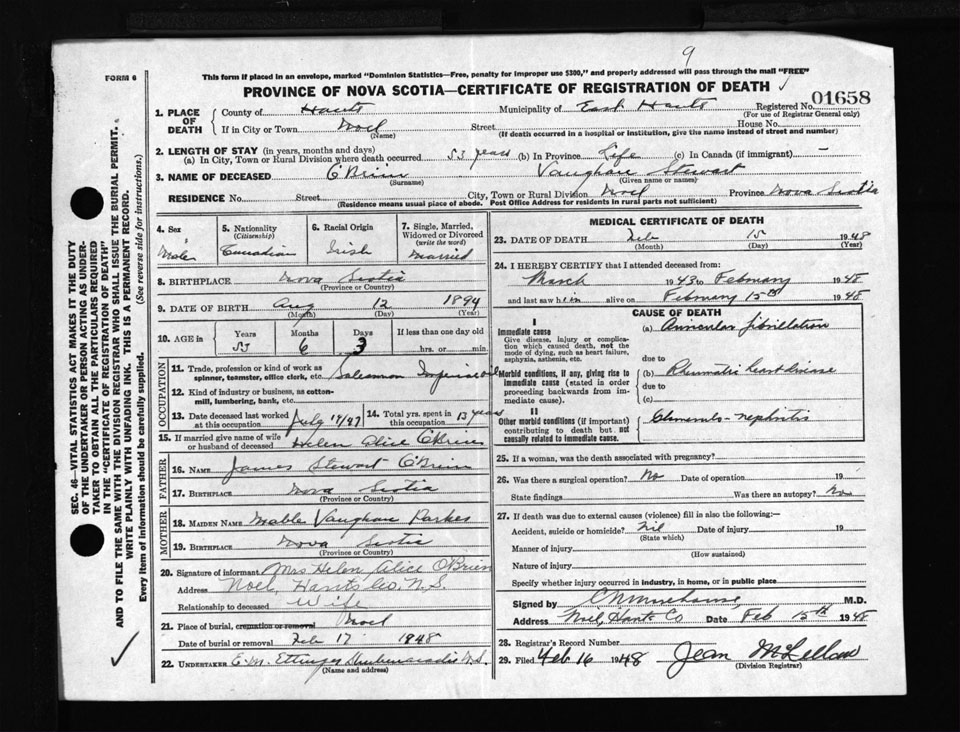 9
This form if placed in an envelope, marked "Dominion Statistics—Free, penalty for improper use $300," and properly addressed will pass through the mail "FREE"
FORM 6
PROVINCE OF NOVA SCOTIA—CERTIFICATE OF REGISTRATION OF DEATH
01658
1. PLACE OF DEATH
County of Hants Municipality of East Hants Registered No.
(For use of Registrar General only)
If in City or Town Noel Street House No.
(Name) (If death occurred in a hospital or institution, give the name instead of street and number)
2. LENGTH OF STAY (in years, months and days)
(a) In City, Town or Rural Division where death occurred 53 years (b) In Province Life (c) In Canada (if immigrant) —
3. NAME OF DECEASED O'Brien Vaughan Stewart
(Surname) (Given name or names)
RESIDENCE No. Street City, Town or Rural Division Noel Province Nova Scotia
(Residence means usual place of abode. Post Office Address for residents in rural parts not sufficient)
4. Sex 5. Nationality (Citizenship) 6. Racial Origin 7. Single, Married, Widowed or Divorced (write the word)
Male Canadian Irish Married
8. BIRTHPLACE Nova Scotia
(Province or Country)
9. DATE OF BIRTH Aug 12 1894
(Month) (Day) (Year)
10. AGE in Years Months Days If less than one day old
53 6 3 hrs. or min.
OCCUPATION
11. Trade, profession or kind of work as spinner, teamster, office clerk, etc. Salesman Imperial oil
12. Kind of industry or business, as cotton-mill, lumbering, bank, etc.
13. Date deceased last worked at this occupation July 17/47 14. Total yrs. spent in this occupation 13 years
15. If married give name of wife or husband of deceased Helen Alice O'Brien
FATHER
16. NAME James Stewart O'Brien
17. BIRTHPLACE Nova Scotia
(Province or Country)
MOTHER
18. MAIDEN NAME Mable Vaughan Parker
19. BIRTHPLACE Nova Scotia
(Province or Country)
20. Signature of informant Mrs Helen Alice O'Brien
Address Noel, Hants Co, N.S.
Relationship to deceased Wife
21. Place of burial, cremation or removal Noel
Date of burial or removal Feb 17 1948
22. UNDERTAKER E. M. Ettinger Shubenacadie N.S.
(Name and address)
MEDICAL CERTIFICATE OF DEATH
23. DATE OF DEATH Feb 15 1948
(Month) (Day) (Year)
24. I HEREBY CERTIFY that I attended deceased from:
March 1943 to February 1948
and last saw him alive on February 15th 1948
CAUSE OF DEATH
I
Immediate cause
Give disease, injury or complication which caused death, not the mode of dying, such as heart failure, asphyxia, asthenia, etc.
(a) Auricular fibrillation
due to
Morbid conditions, if any, giving rise to immediate cause (stated in order proceeding backwards from immediate cause).
(b) Rheumatic heart disease
due to
(c)
II
Other morbid conditions (if important) contributing to death but not causally related to immediate cause.
Glomerulo-nephritis
25. If a woman, was the death associated with pregnancy?
26. Was there a surgical operation? No Date of operation 19
State findings Was there an autopsy? No
27. If death was due to external causes (violence) fill in also the following:—
Accident, suicide or homicide? Nil Date of injury 19
(State which)
Manner of injury
(How sustained)
Nature of injury
Specify whether injury occurred in industry, in home, or in public place
Signed by M.D.
Address Noel Hants Co Date Feb 15th 1948
28. Registrar's Record Number
29. Filed Feb 16 1948 Jean McLellan
(Division Registrar)
SEC. 46—VITAL STATISTICS ACT MAKES IT THE DUTY
OF THE UNDERTAKER OR PERSON ACTING AS UNDER-
TAKER TO OBTAIN ALL THE PARTICULARS REQUIRED
IN THE "CERTIFICATE OF REGISTRATION OF DEATH"
AND TO FILE THE SAME WITH THE DIVISION REGISTRAR WHO SHALL ISSUE THE BURIAL PERMIT.
WRITE PLAINLY WITH UNFADING INK. THIS IS A PERMANENT RECORD.
Every item of Information should be carefully supplied. (See reverse side for instructions.)